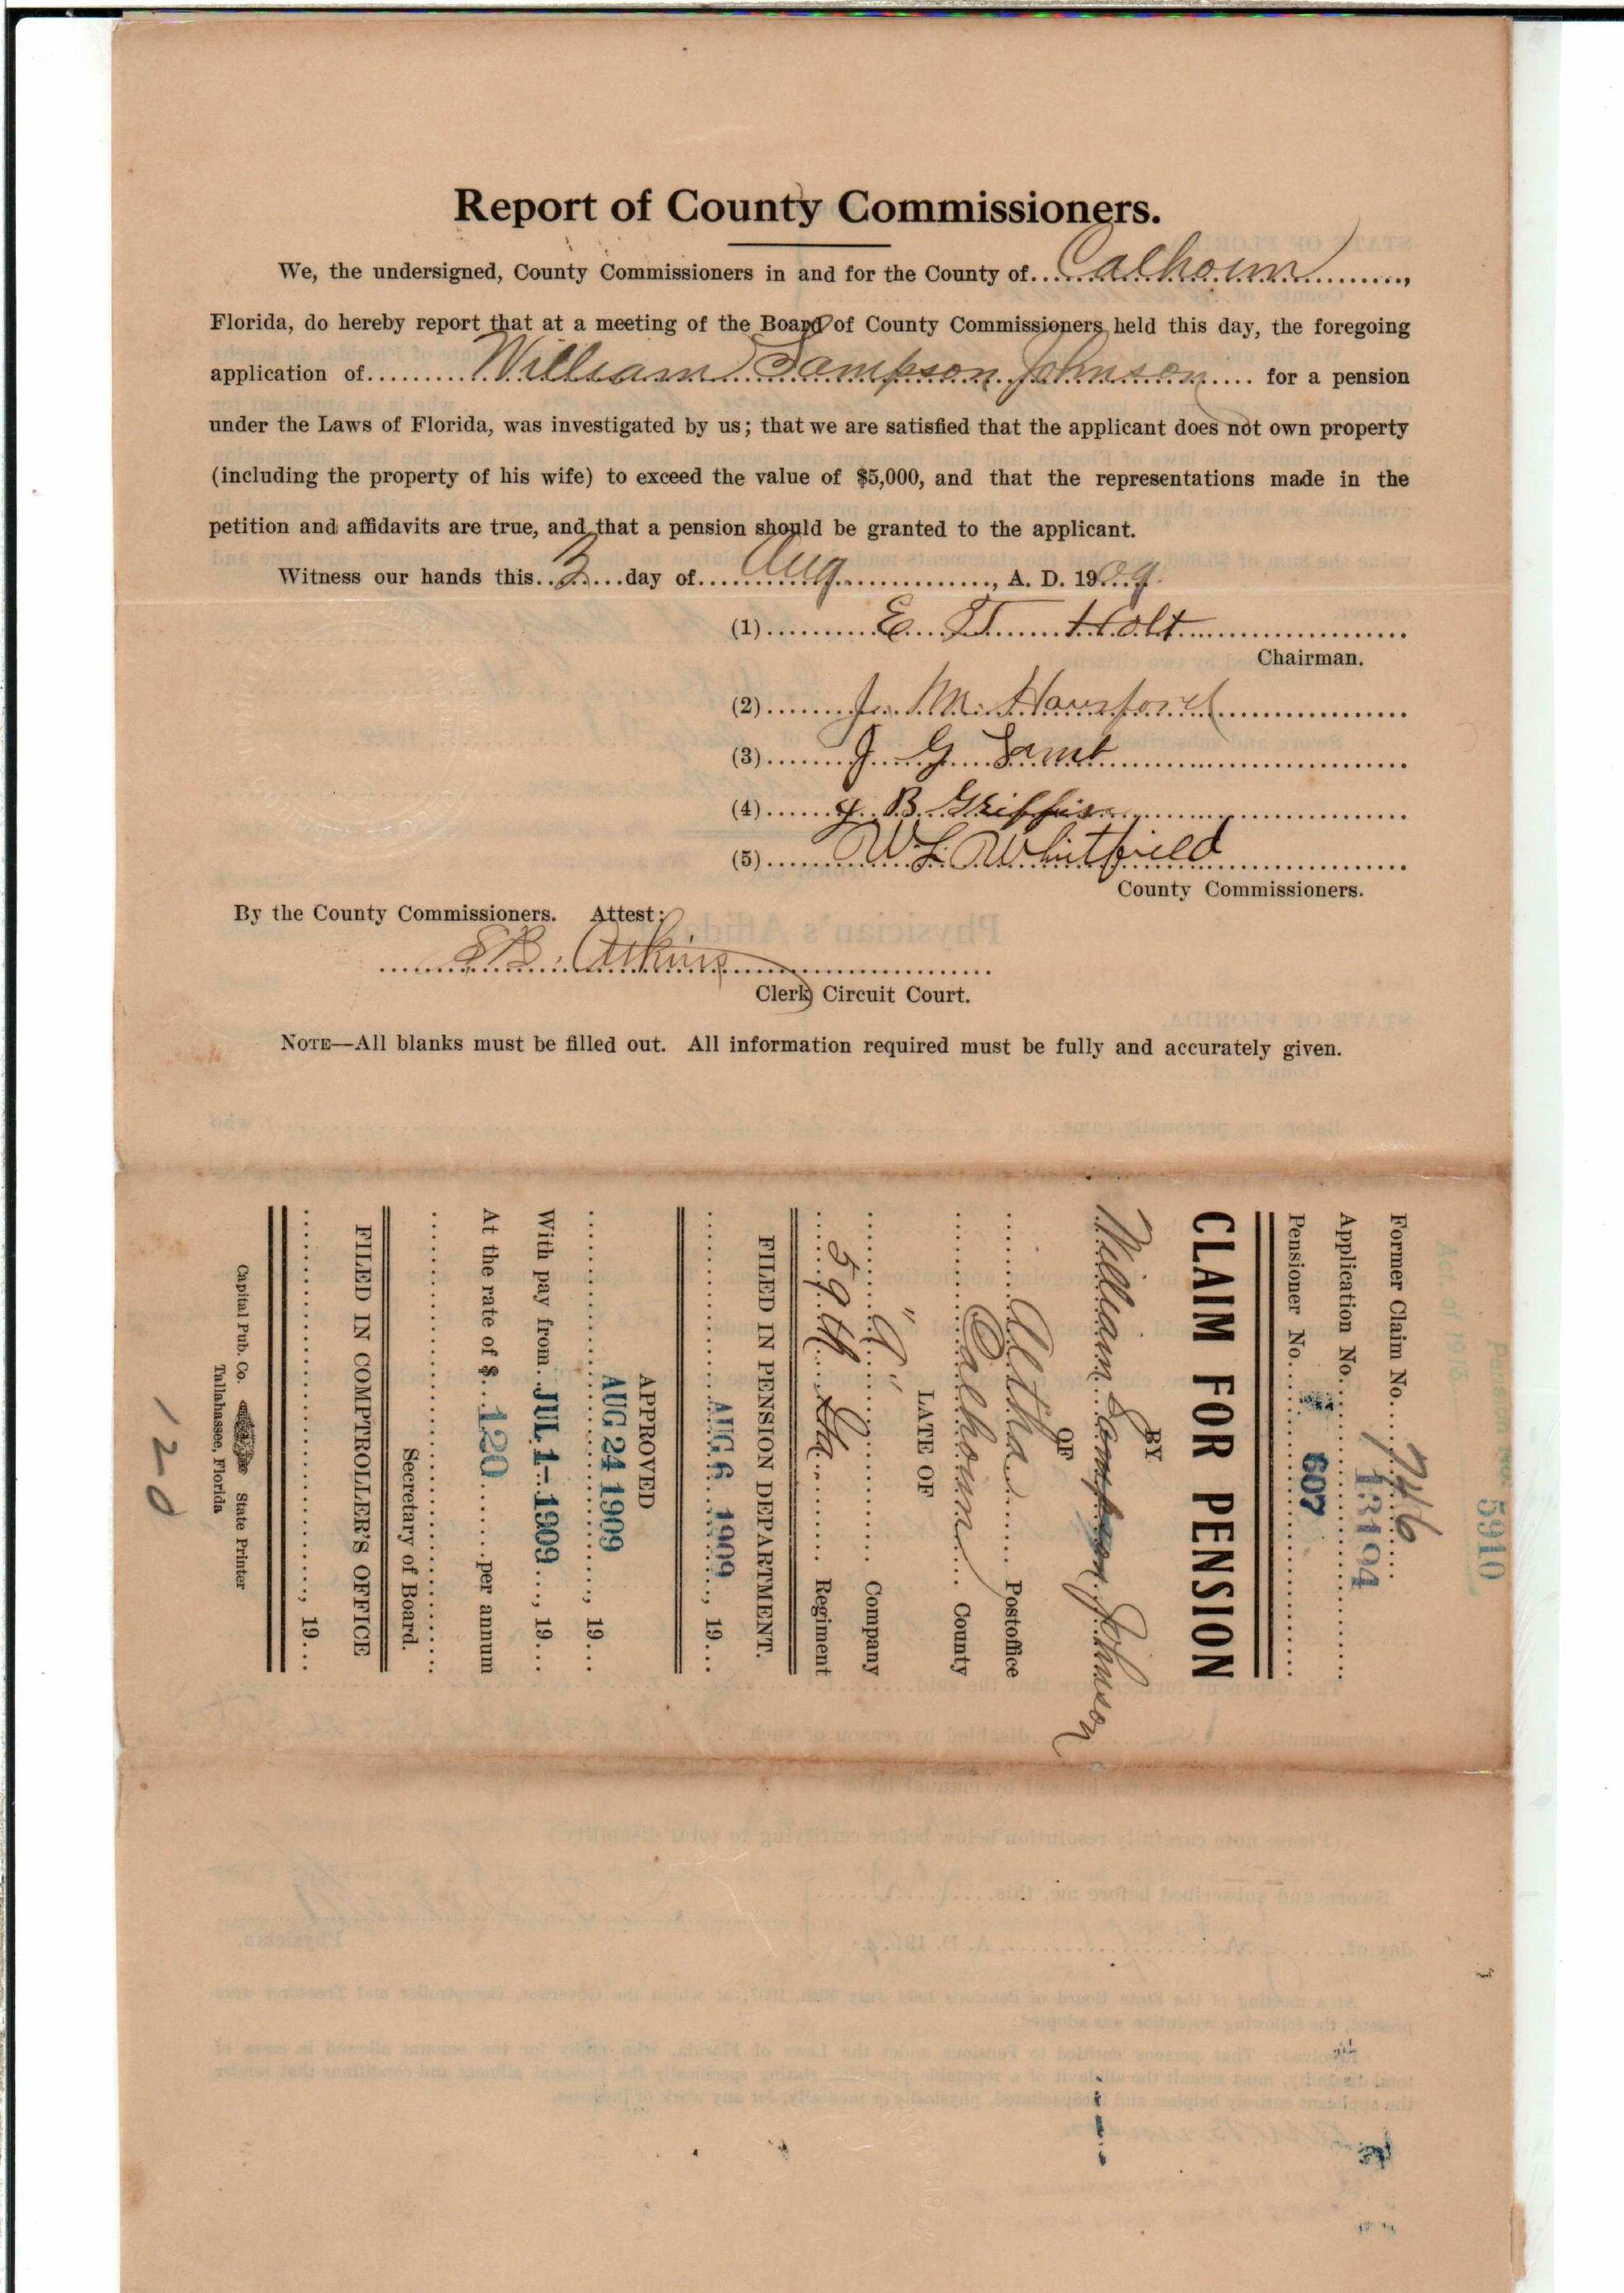 Report of County Commissioners.
We, the undersigned, County Commissioners in and for the County of Calhoun,
Florida, do hereby report that at a meeting of the Board of County Commissioners held this day, the foregoing
application of William Sampson Johnson for a pension
under the Laws of Florida, was investigated by us; that we are satisfied that the applicant does not own property
(including the property of his wife) to exceed the value of $5,000, and that the representations made in the
petition and affidavits are true, and that a pension should be granted to the applicant.
Witness our hands this 3 day of Aug, A. D. 1909.
(1) E. T. Holt
Chairman.
(2) J. M. Hansford
(3) J. G. Lamb
(4) B Griffin
(5) W L Whitfield
County Commissioners.
By the County Commissioners. Attest:
Atkins
Clerk Circuit Court.
NOTE—All blanks must be filled out. All information required must be fully and accurately given.
Act of 1913
Pension No. 5910
Former Claim No. 746
Application No. 13194
Pensioner No. 607
CLAIM FOR PENSION
BY
William Sampson Johnson
OF
Altha Postoffice
Calhoun County
LATE OF
"G" Company
59th Ga. Regiment
FILED IN PENSION DEPARTMENT.
AUG 6 1909, 19
APPROVED
AUG 24 1909, 19
With pay from JUL 1-1909, 19
At the rate of $ 120 per annum
Secretary of Board.
FILED IN COMPTROLLER'S OFFICE
, 19
Capital Pub. Co. State Printer
Tallahassee, Florida
120